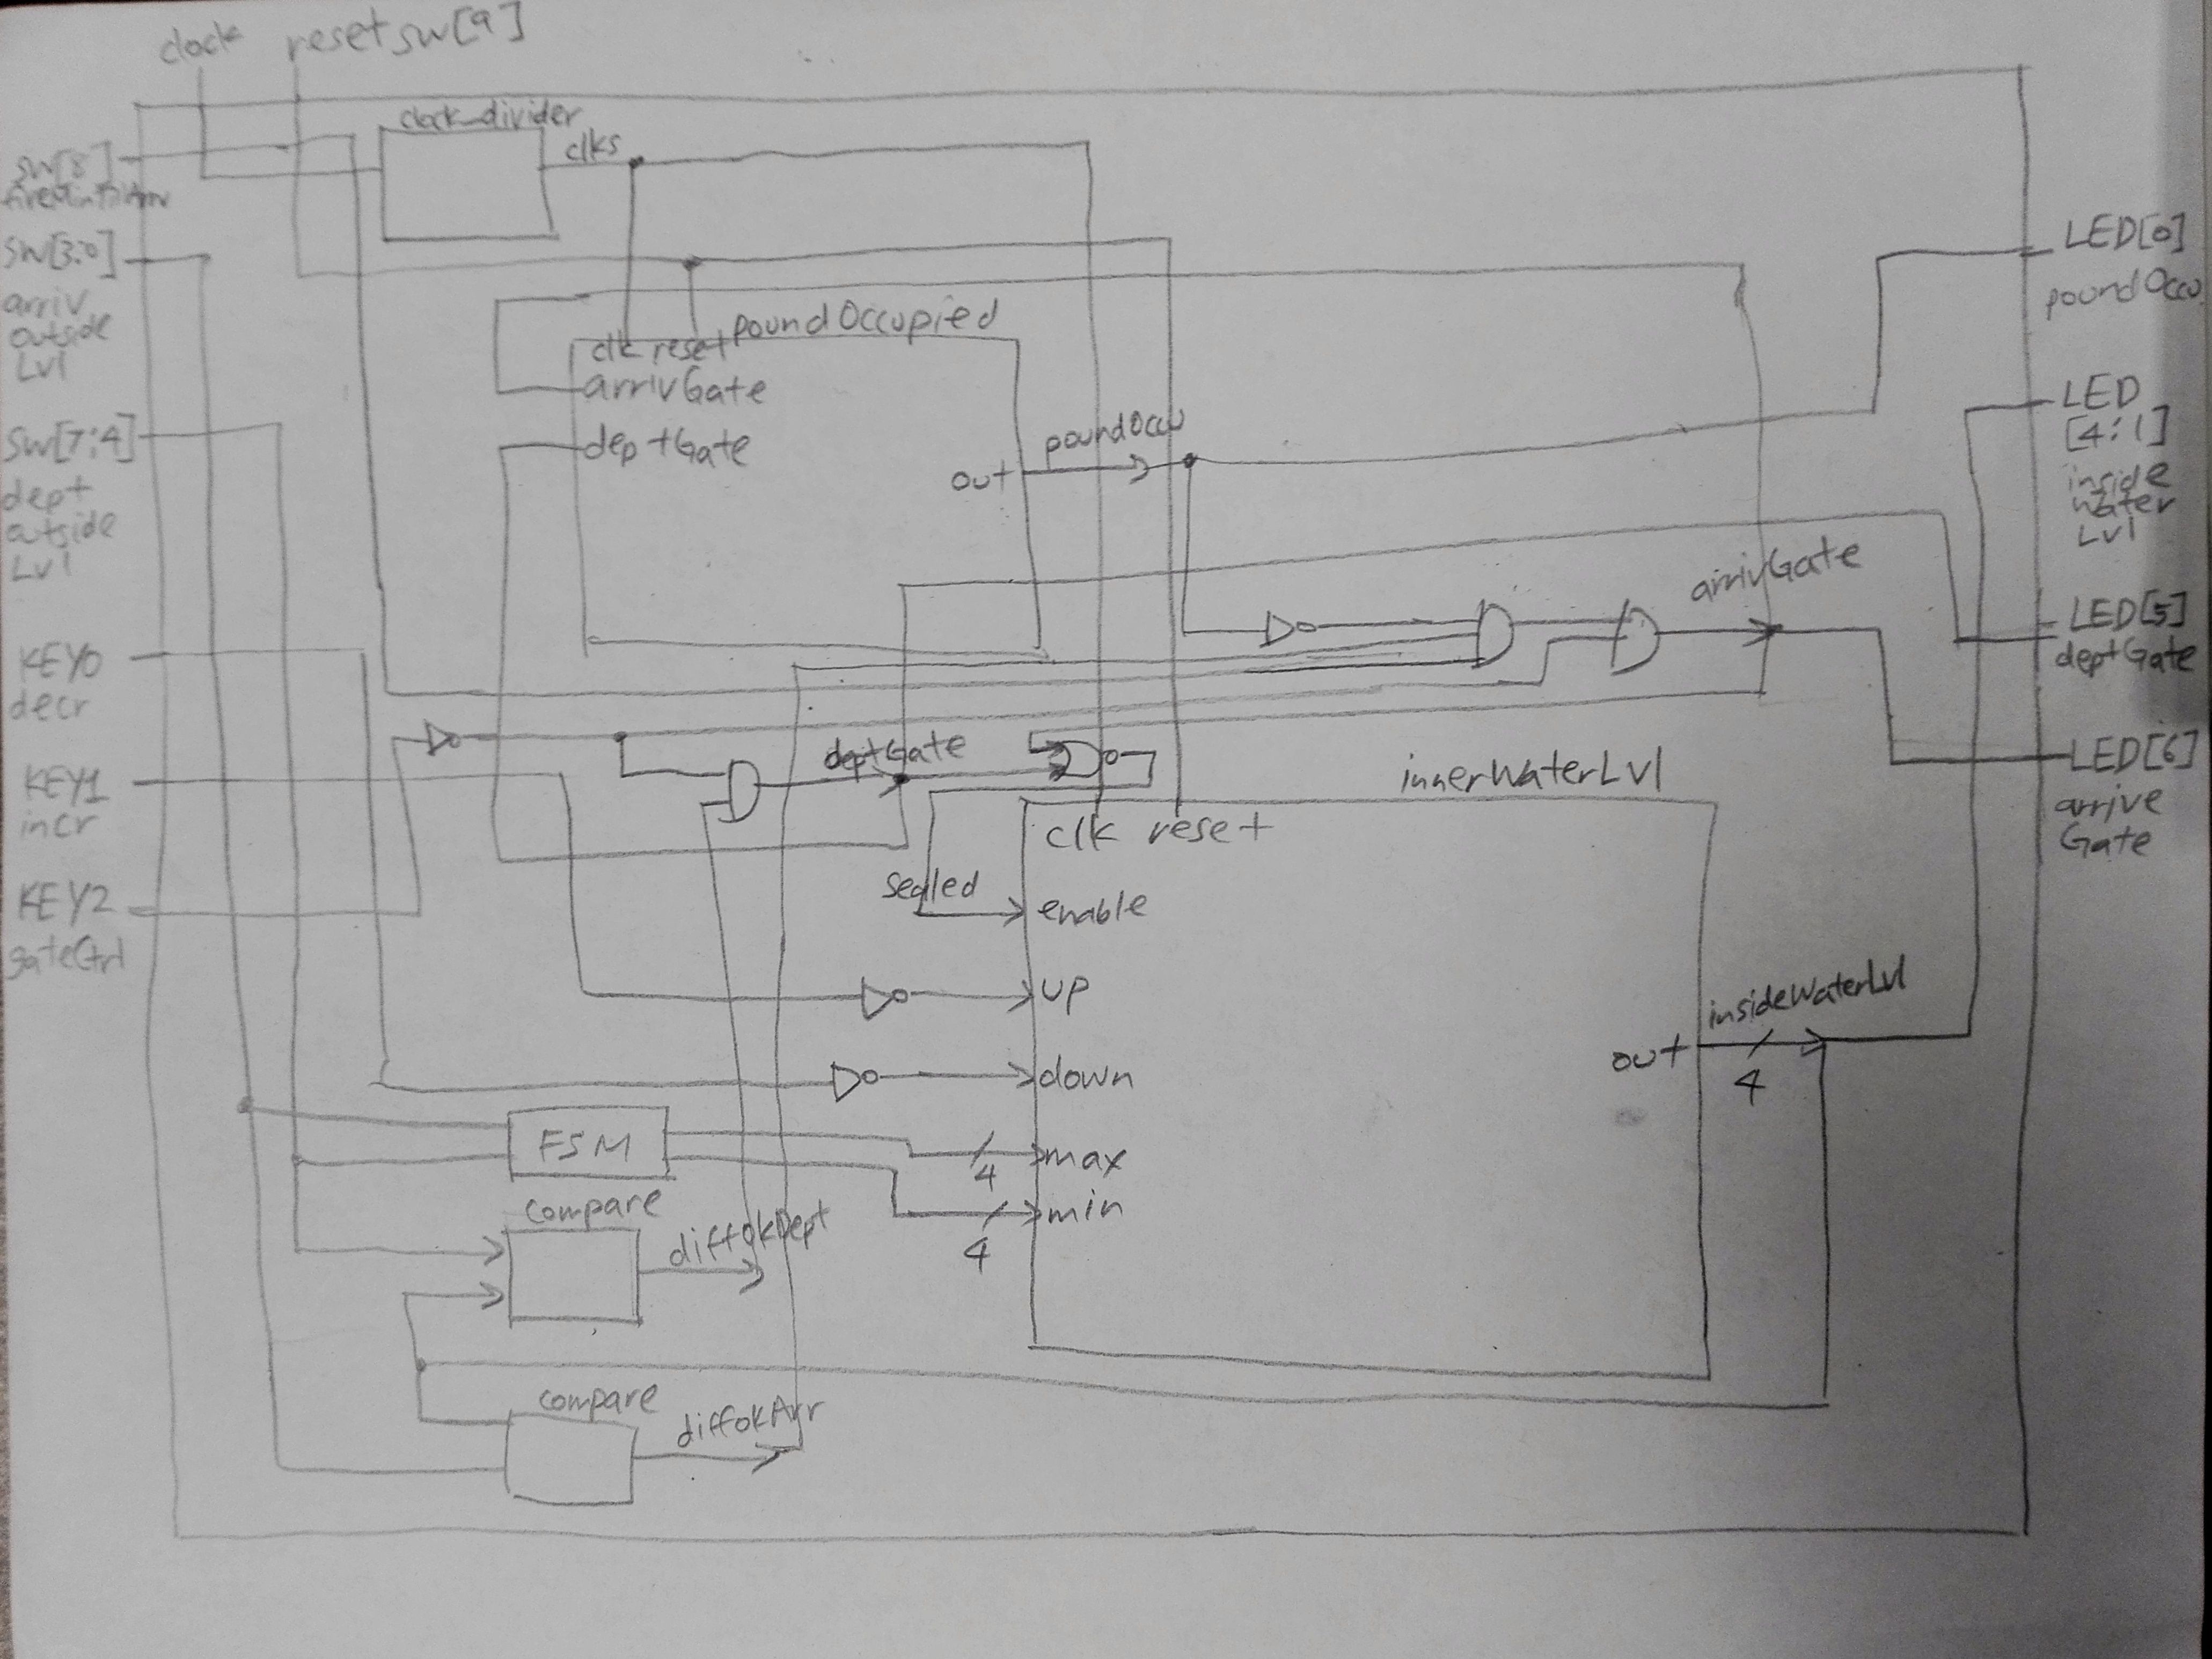 clock
resetsw[9]
clock_divider
clks
sw[8]
sw[3:0]
arriv
outside
Lvl
sw[7:4]
dept
outside
Lvl
KEY0
decr
KEY1
incr
KEY2
gateCtrl
poundOccupied
clk reset
arrivGate
deptGate
out
poundOccu
arrivGate
deptGate
innerWaterLvl
clk reset
sealed
enable
up
down
max
4
min
4
out
insideWaterLvl
4
FSM
compare
diffOkDept
compare
diffOkArr
LED[0]
poundOccu
LED
[4:1]
inside
Water
Lvl
LED[5]
deptGate
LED[6]
arrive
Gate